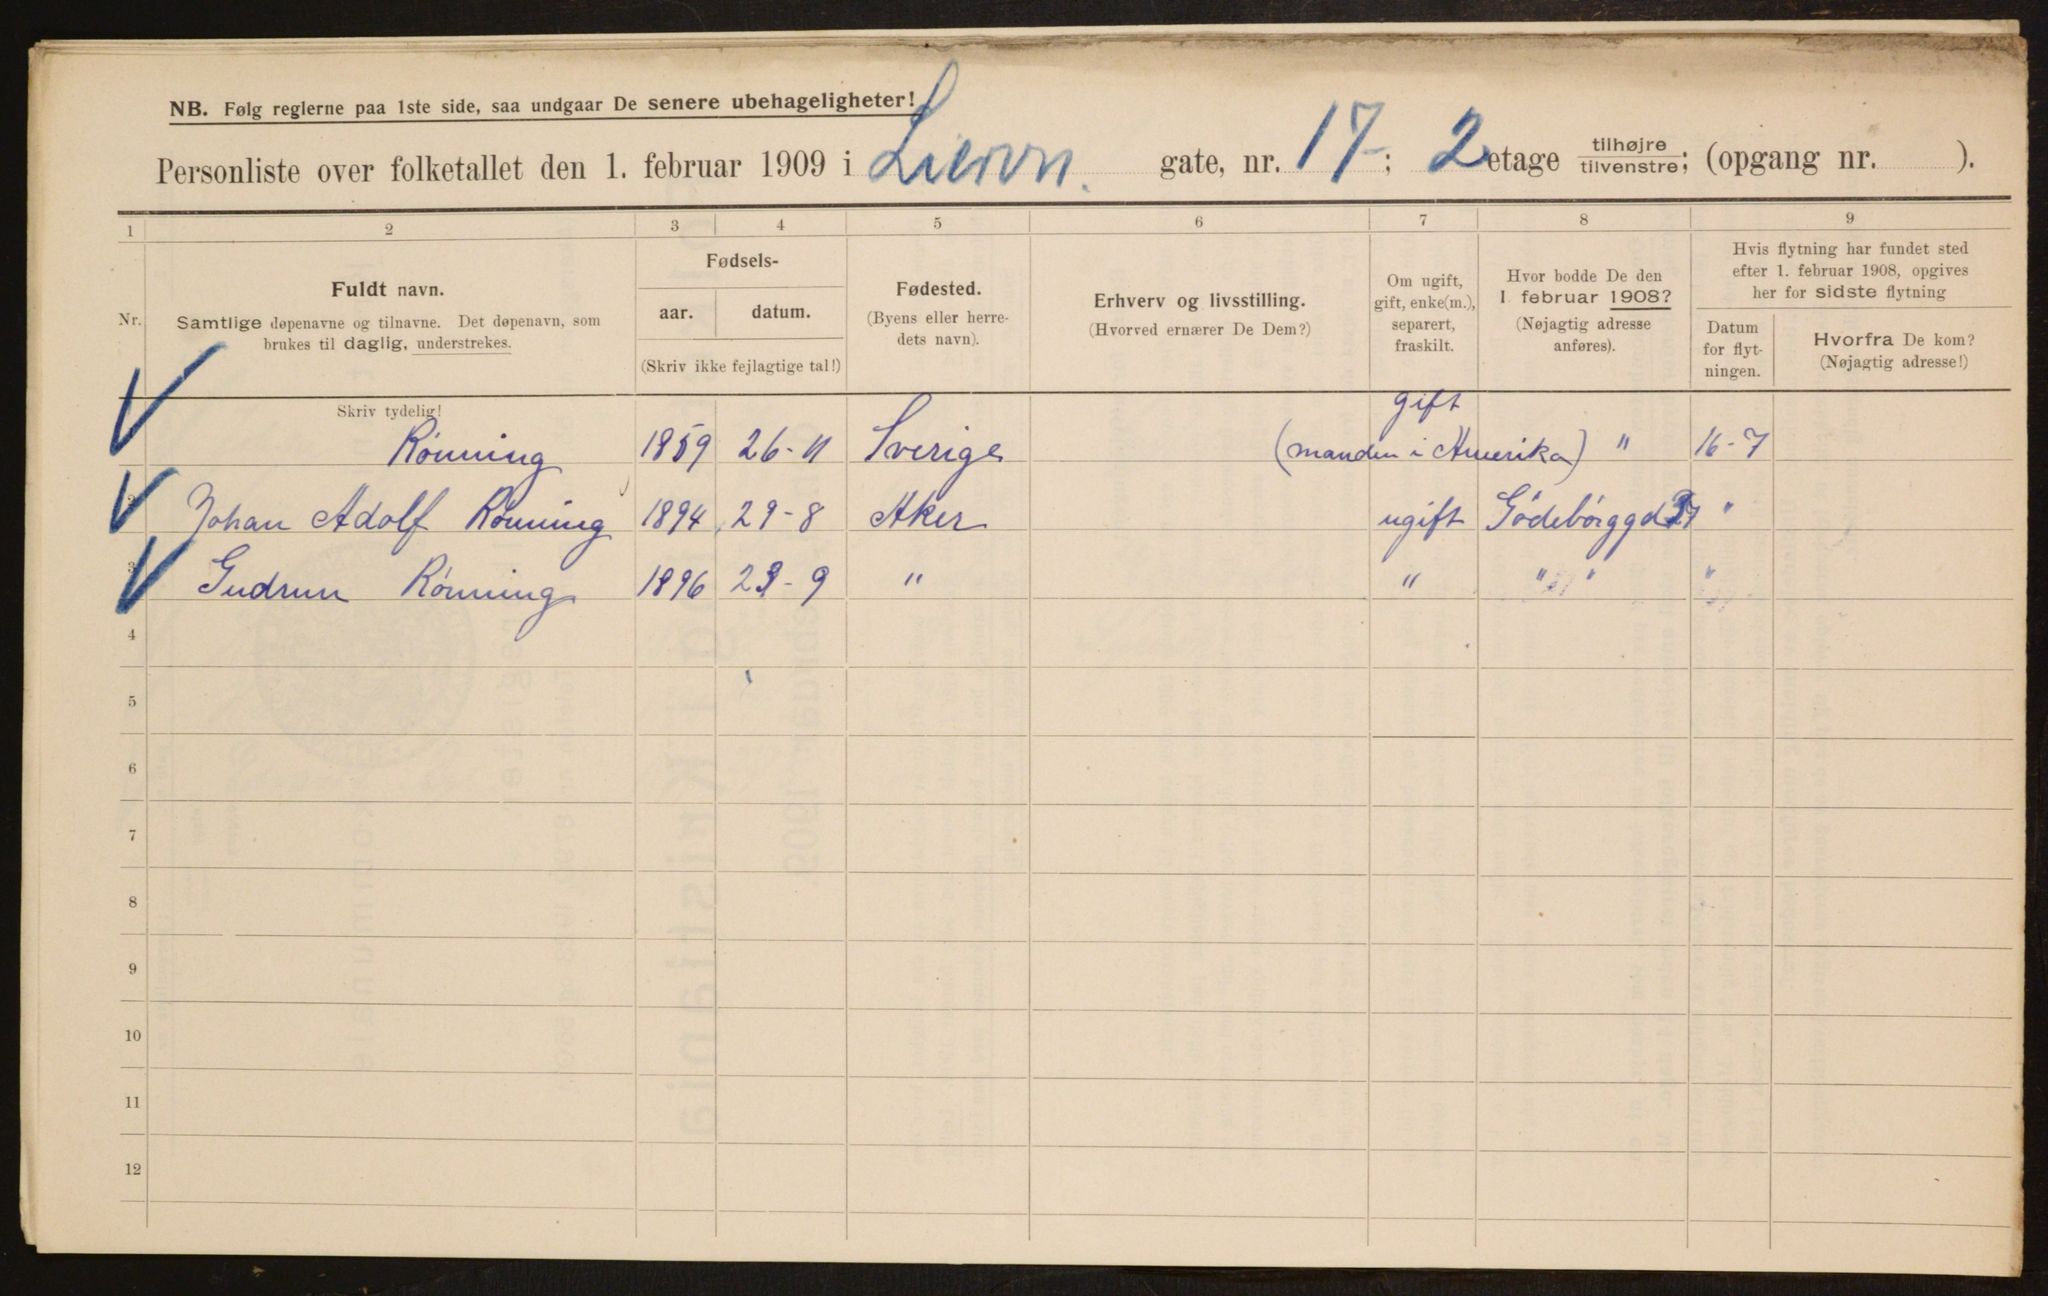 NB. Følg reglerne paa 1ste side, saa undgaar De senere ubehageligheter!
Personliste over folketallet den 1. februar 1909 i gate, nr. 17; 2 etage tilhøjre/tilvenstre; (opgang nr. ).
1 2 3 4 5 6 7 8 9
Nr.
Fuldt navn.
Samtlige døpenavne og tilnavne. Det døpenavn, som
brukes til daglig, understrekes.
Fødsels-
aar. datum.
(Skriv ikke fejlagtige tal!)
Fødested.
(Byens eller herre-
dets navn).
Erhverv og livsstilling.
(Hvorved ernærer De Dem?)
Om ugift,
gift, enke(m.),
separert,
fraskilt.
Hvor bodde De den
1. februar 1908?
(Nøjagtig adresse
anføres).
Hvis flytning har fundet sted
efter 1. februar 1908, opgives
her for sidste flytning
Datum
for flyt-
ningen.
Hvorfra De kom?
(Nøjagtig adresse!)
Skriv tydelig!
gift
Rønning 1859 26-11 Sverige (manden i Amerika) " 16-7
2 Johan Adolf Rønning 1894 29-8 Aker ugift "
3 Gudrun Rønning 1896 23-9 " " " " "
4
5
6
7
8
9
10
11
12